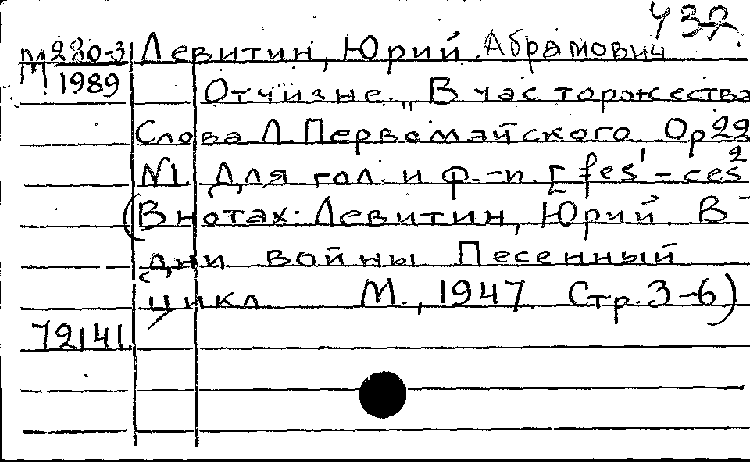 432
М 280-3 Левитин, Юрий Абрамович
М 1989 Отчизне. „В час торжества
Слова Л. Первомайского. Ор 22
N1. Для гол. и ф.-п. [fes¹-ces²
(В нотах: Левитин, Юрий. В
дни войны. Песенный
цикл. М., 1947. Стр. 3-6)
72141